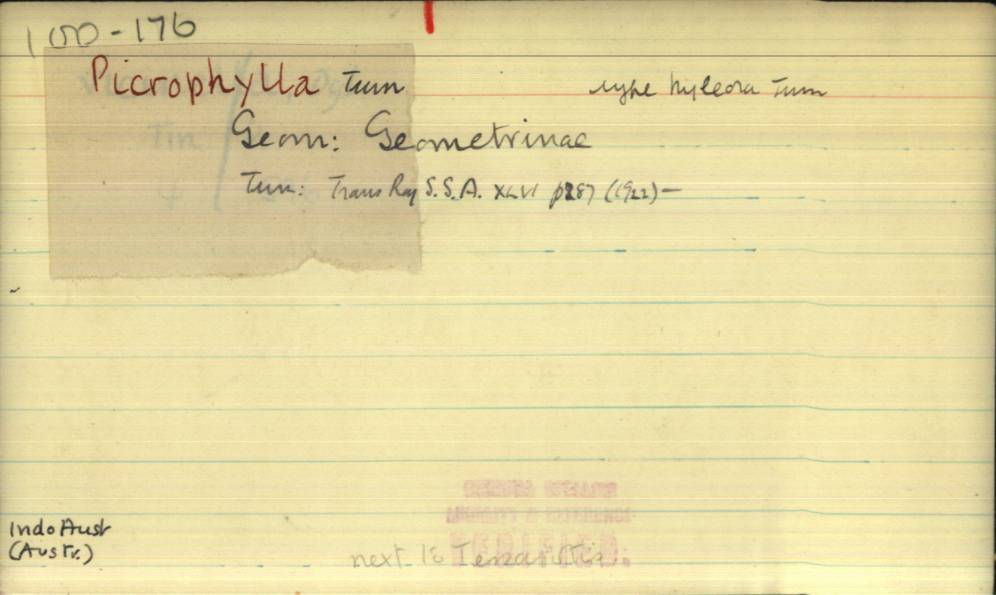 100-176
Picrophylla Turn type hyleora Turn
Geom: Geometrinae
Turn: Trans Roy S.S.A. XLVI p287 (1922)—
Indo Aust
(Austr.)
next to